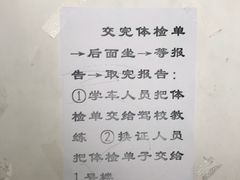 交完体检单
→后面坐→等报
告→取完报告：
①学车人员把体
检单交给驾校教
练 ②换证人员
把体检单子交给
1号楼